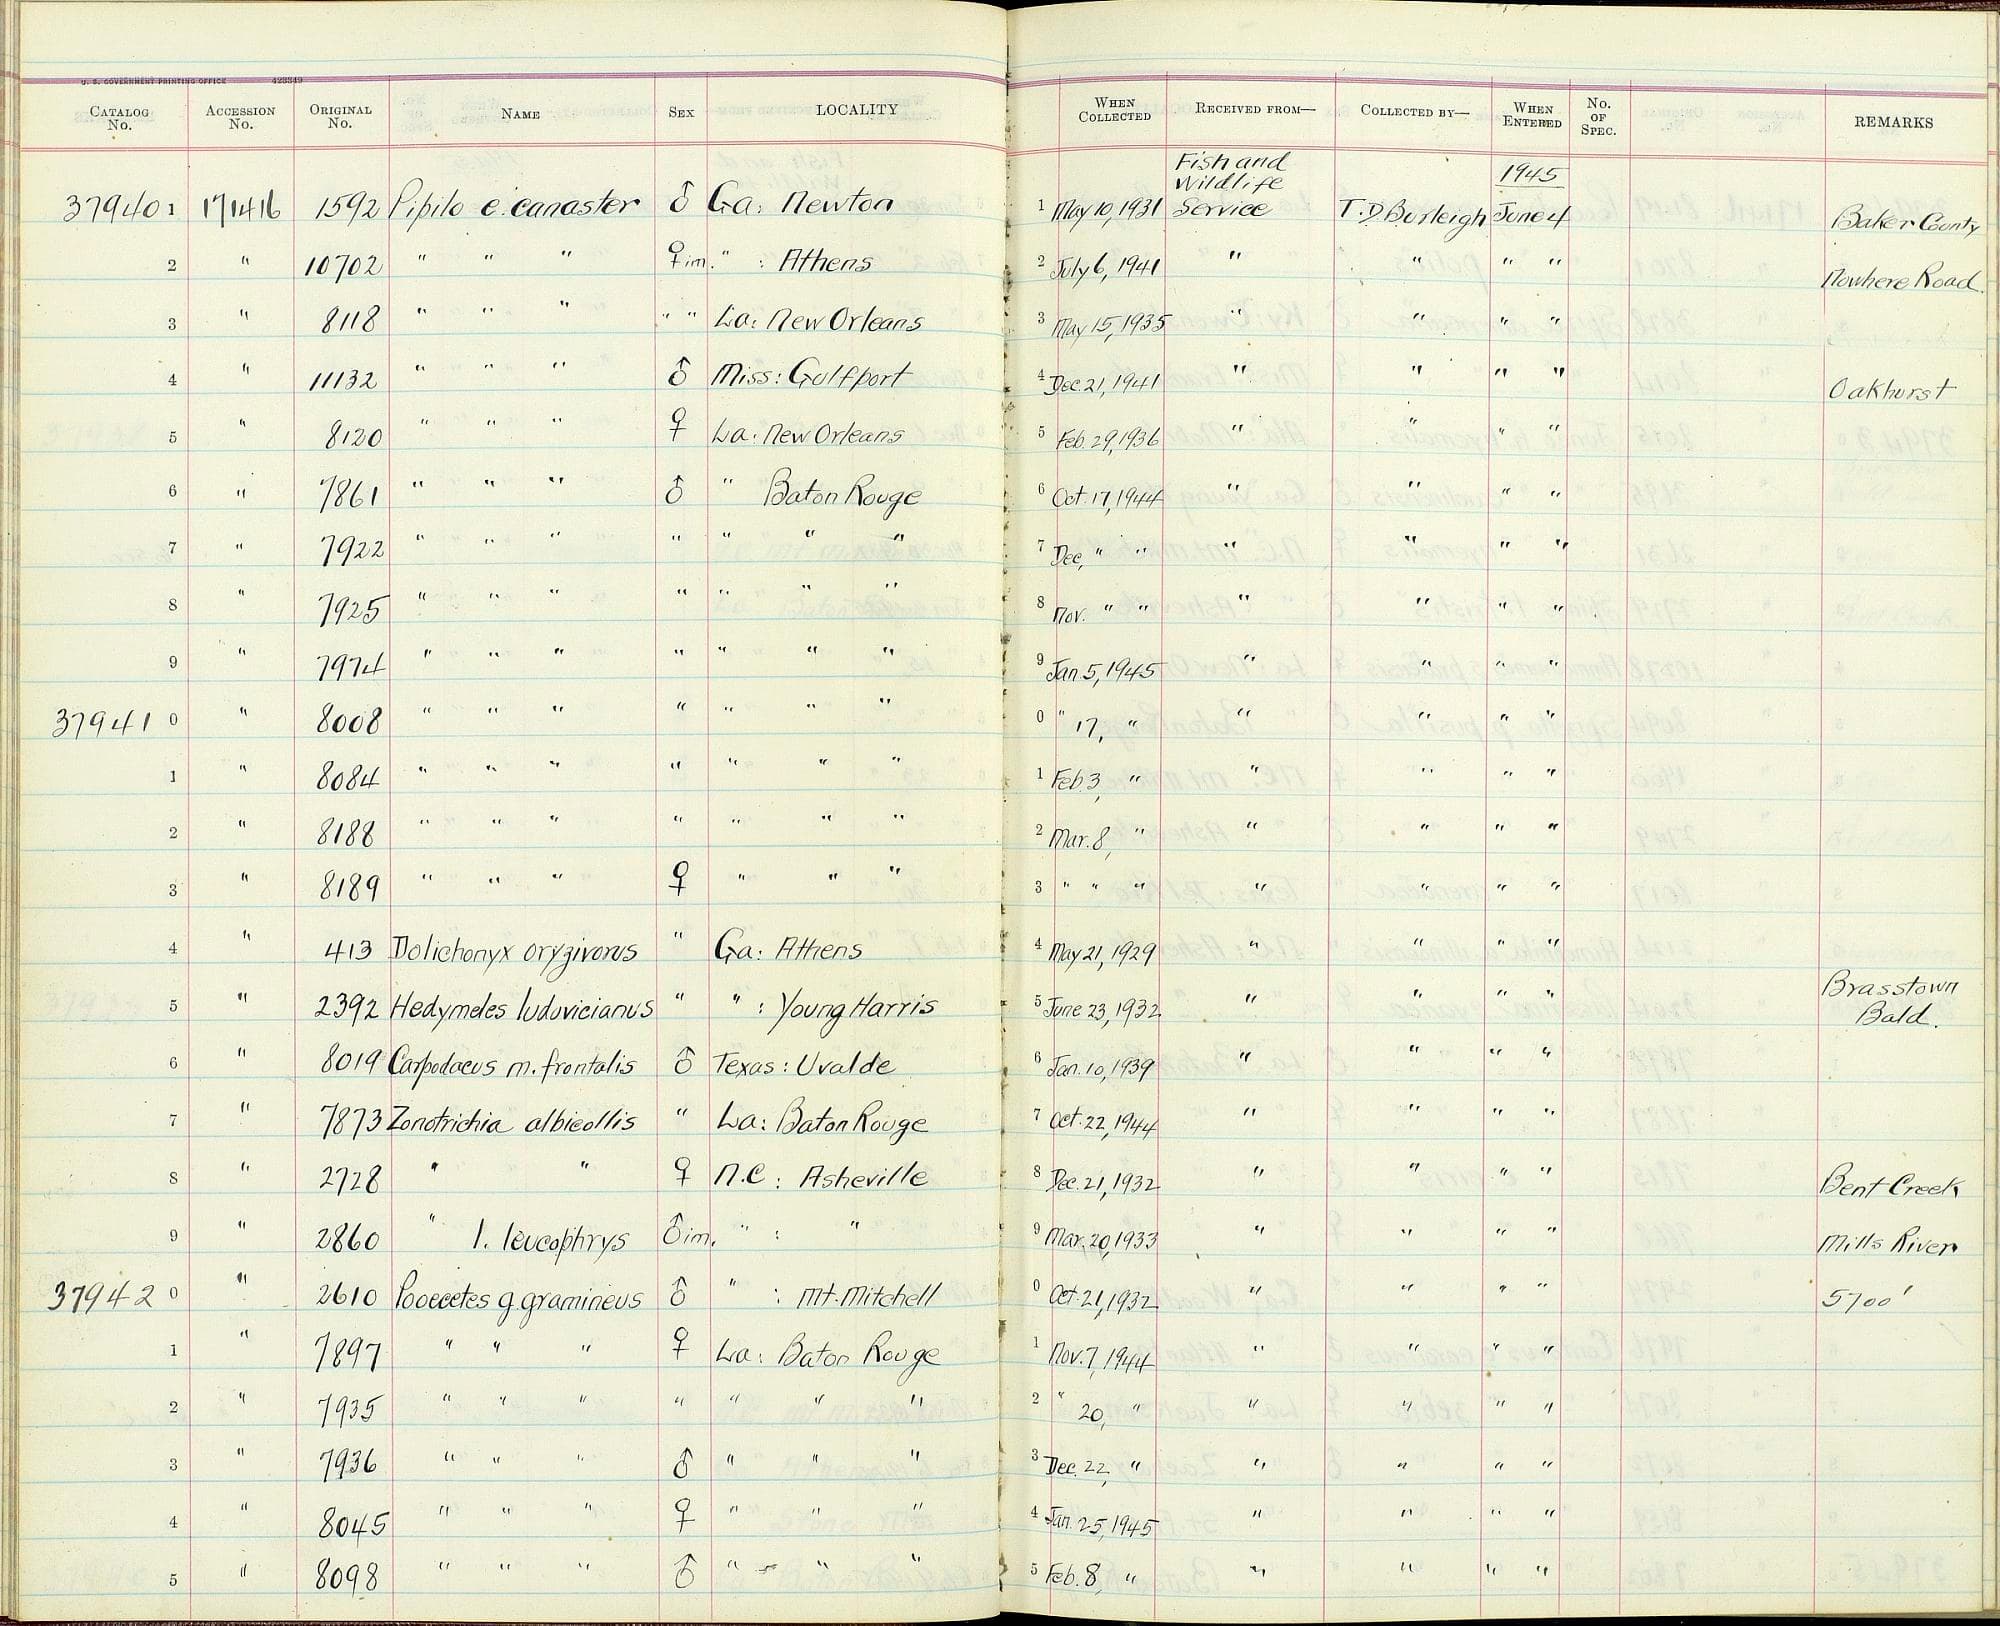 U. S. GOVERNMENT PRINTING OFFICE 423349
CATALOG No. ACCESSION No. ORIGINAL No. NAME SEX LOCALITY WHEN COLLECTED RECEIVED FROM— COLLECTED BY— WHEN ENTERED No. OF SPEC. REMARKS
379401 171416 1592 Pipilo e. canaster ♂ Ga: Newton 1 May 10, 1931 Fish and Wildlife Service T.D. Burleigh 1945 June 4 Baker County
2 " 10702 " " " ♀ im. " : Athens 2 July 6, 1941 " " " " Nowhere Road
3 " 8118 " " " " " La: New Orleans 3 May 15, 1935 " " " "
4 " 11132 " " " ♂ Miss: Gulfport 4 Dec. 21, 1941 " " " " Oakhurst
5 " 8120 " " " ♀ La: New Orleans 5 Feb. 29, 1936 " " " "
6 " 7861 " " " ♂ " Baton Rouge 6 Oct. 17, 1944 " " " "
7 " 7922 " " " " " " " 7 Dec. " " " " " "
8 " 7925 " " " " " " " 8 Nov. " " " " " "
9 " 7974 " " " " " " " 9 Jan. 5, 1945 " " " "
379410 " 8008 " " " " " " " 0 " 17, " " " " "
1 " 8084 " " " " " " " 1 Feb. 3, " " " " "
2 " 8188 " " " " " " " 2 Mar. 8, " " " " "
3 " 8189 " " " ♀ " " " 3 " " " " " " "
4 " 413 Dolichonyx oryzivorus " Ga: Athens 4 May 21, 1929 " " " "
5 " 2392 Hedymeles ludovicianus " " : Young Harris 5 June 23, 1932 " " " " Brasstown Bald.
6 " 8019 Carpodacus m. frontalis ♂ Texas: Uvalde 6 Jan. 10, 1939 " " " "
7 " 7873 Zonotrichia albicollis " La: Baton Rouge 7 Oct. 22, 1944 " " " "
8 " 2728 " " ♀ N.C: Asheville 8 Dec. 21, 1932 " " " " Bent Creek
9 " 2860 " l. leucophrys ♂ im. " : " 9 Mar. 20, 1933 " " " " Mills River
379420 " 2610 Pooecetes g. gramineus ♂ " : Mt. Mitchell 0 Oct. 21, 1932 " " " " 5700'
1 " 7897 " " " ♀ La: Baton Rouge 1 Nov. 7, 1944 " " " "
2 " 7935 " " " " " " " 2 " 20, " " " " "
3 " 7936 " " " ♂ " " " 3 Dec. 22, " " " " "
4 " 8045 " " " ♀ " " " 4 Jan. 25, 1945 " " " "
5 " 8098 " " " ♂ " " " 5 Feb. 8, " " " " "